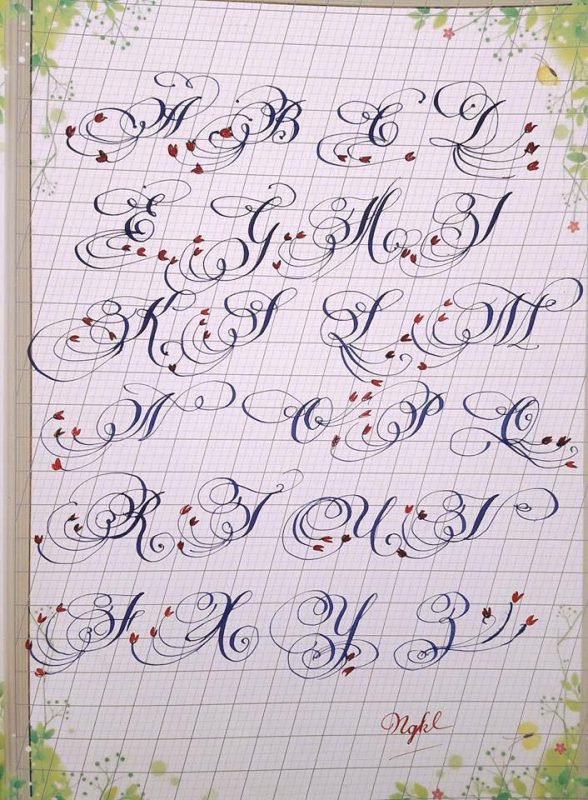 A B C D
E G H I
K S L M
N O P Q
R T U V
F X Y Z
Ngkl